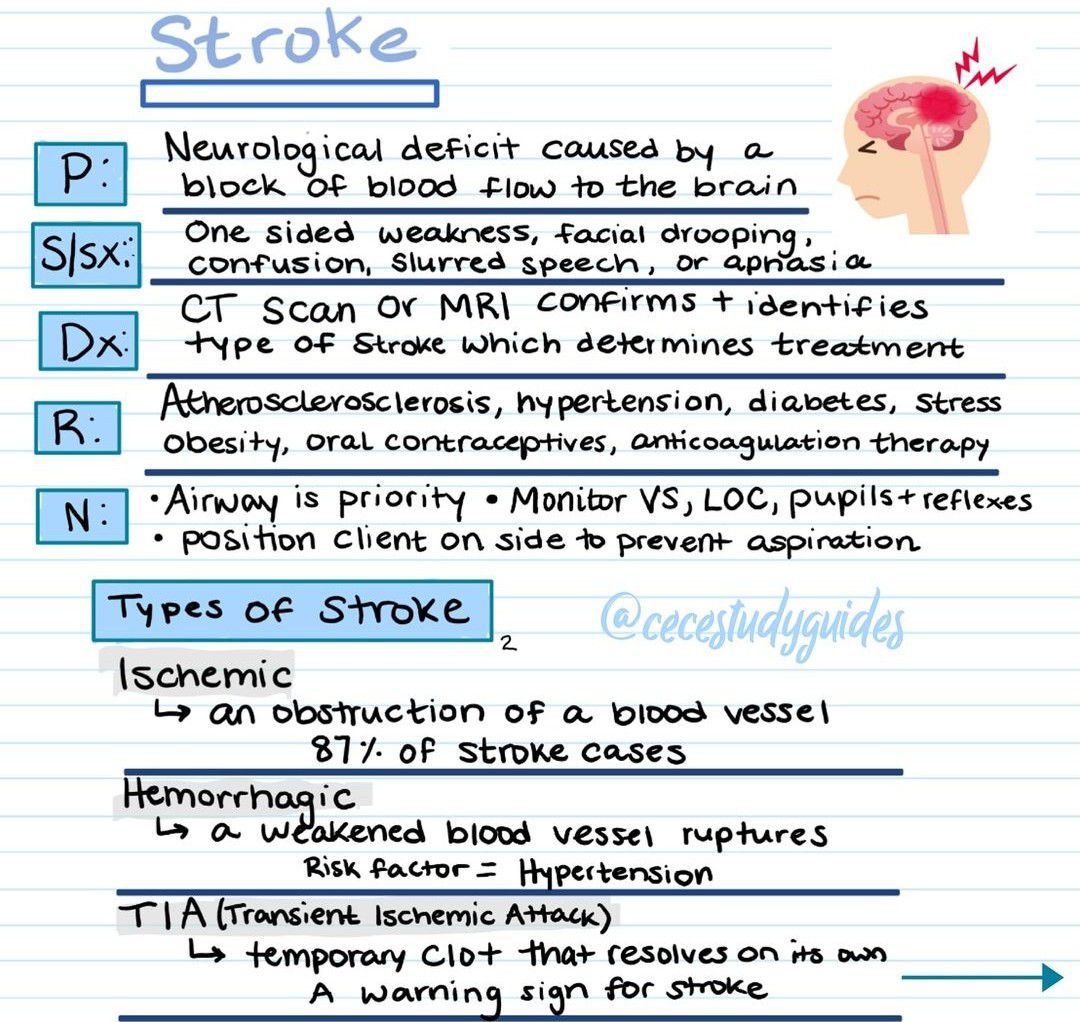 Stroke
P:
Neurological deficit caused by a
block of blood flow to the brain
S/sx:
One sided weakness, facial drooping,
confusion, slurred speech, or aphasia
Dx:
CT scan or MRI confirms + identifies
type of stroke which determines treatment
R:
Atherosclerosclerosis, hypertension, diabetes, stress
obesity, oral contraceptives, anticoagulation therapy
N:
• Airway is priority • Monitor VS, LOC, pupils + reflexes
• position client on side to prevent aspiration
Types of Stroke
2
@cecestudyguides
Ischemic
↳ an obstruction of a blood vessel
87% of stroke cases
Hemorrhagic
↳ a weakened blood vessel ruptures
Risk factor = Hypertension
TIA (Transient Ischemic Attack)
↳ temporary clot that resolves on its own
A warning sign for stroke